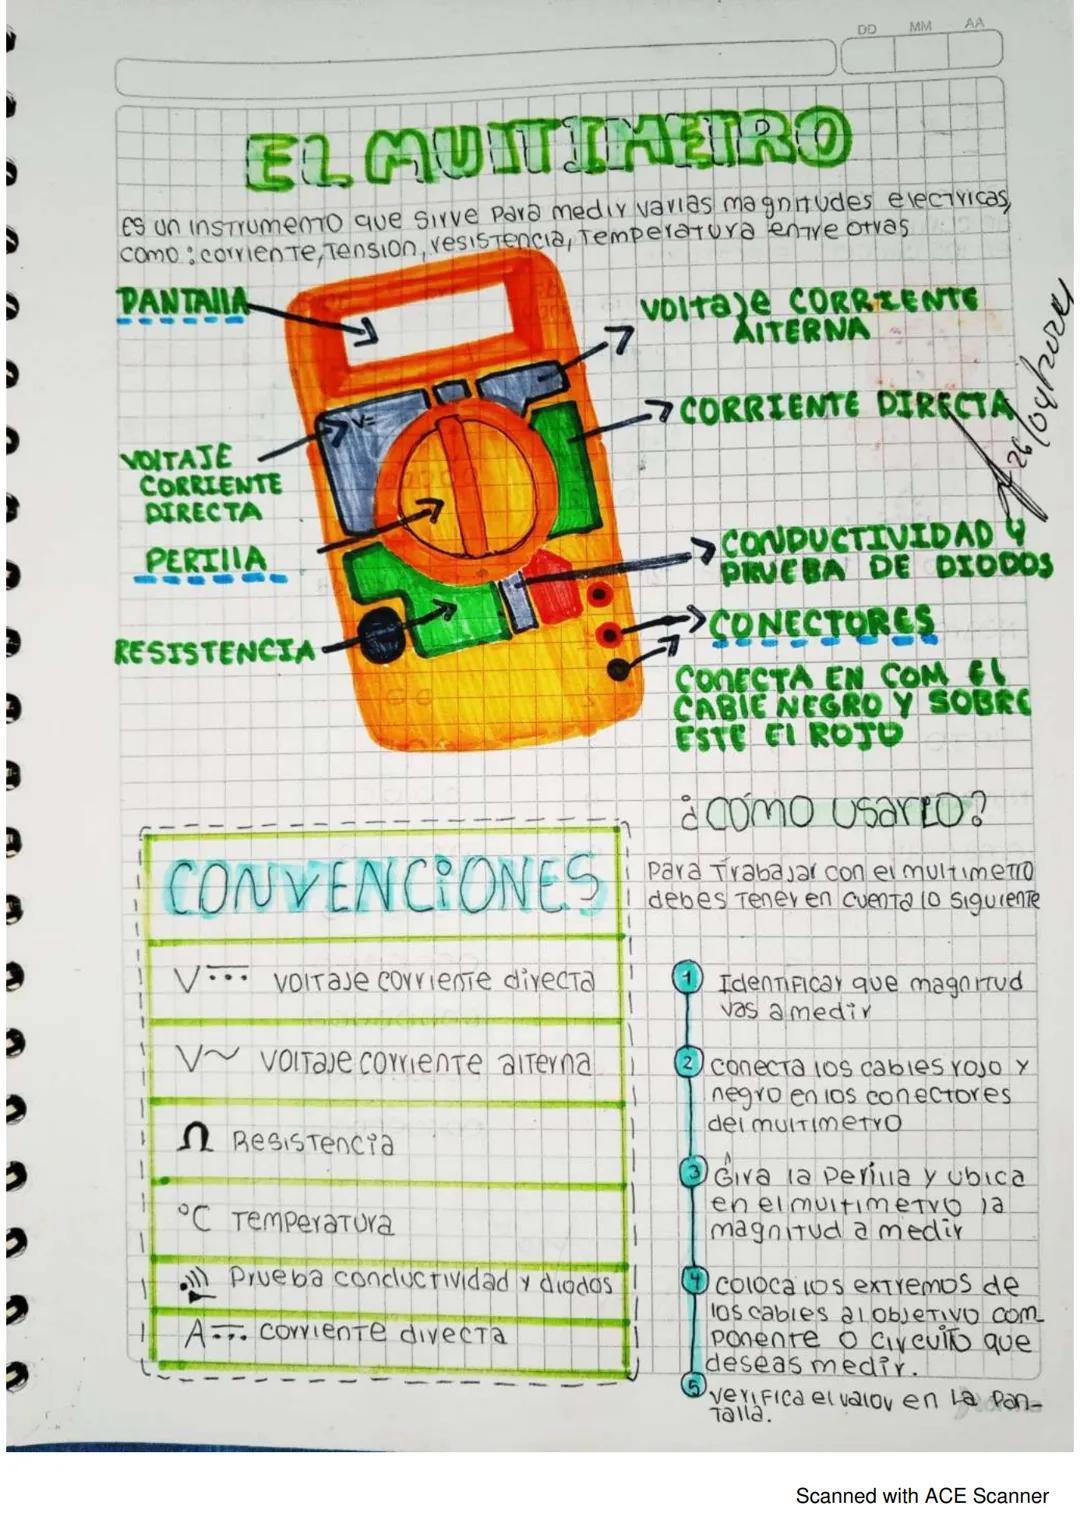 DD MM AA
EL MULTIMETRO
Es un instrumento que sirve para medir varias magnitudes electricas,
como: corriente, Tension, resistencia, Temperatura entre otras
PANTALLA
VOLTAJE CORRIENTE
ALTERNA
CORRIENTE DIRECTA
26/04/2022
V=
VOLTAJE
CORRIENTE
DIRECTA
PERILLA
CONDUCTIVIDAD Y
PRUEBA DE DIODOS
CONECTORES
RESISTENCIA
CONECTA EN COM EL
CABLE NEGRO Y SOBRE
ESTE EL ROJO
¿CÓMO USARLO?
CONVENCIONES
Para Trabajar con el multimetro
debes Tener en cuenta lo siguiente
V⎓ VOLTAJE corriente directa
V~ VOLTAJE corriente alterna
Ω Resistencia
°C Temperatura
Prueba conductividad y diodos
A⎓ corriente directa
1 Identificar que magnitud
vas a medir
2 conecta los cables rojo y
negro en los conectores
del multimetro
3 Gira la perilla y ubica
en el multimetro la
magnitud a medir
4 coloca los extremos de
los cables al objetivo com
ponente o circuito que
deseas medir.
5 verifica el valor en la Pan-
talla.
Scanned with ACE Scanner